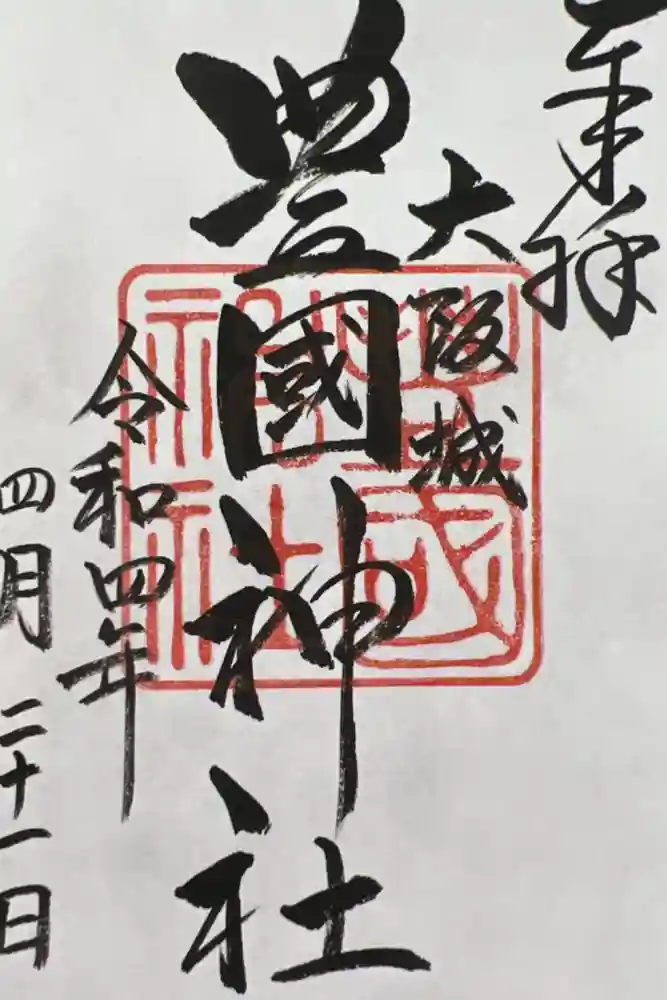 奉拝
大阪城
豊國神社
令和四年
四月二十一日
豊國
神社